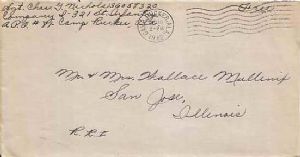 Sgt. Chas. G. Nichols 36058320
Company I 321 St Infantry
A.P.O. # 81 Camp Rucker Ala.
Free
Mr & Mrs. Wallace Mullinix
San Jose,
Illinois
R.R.I